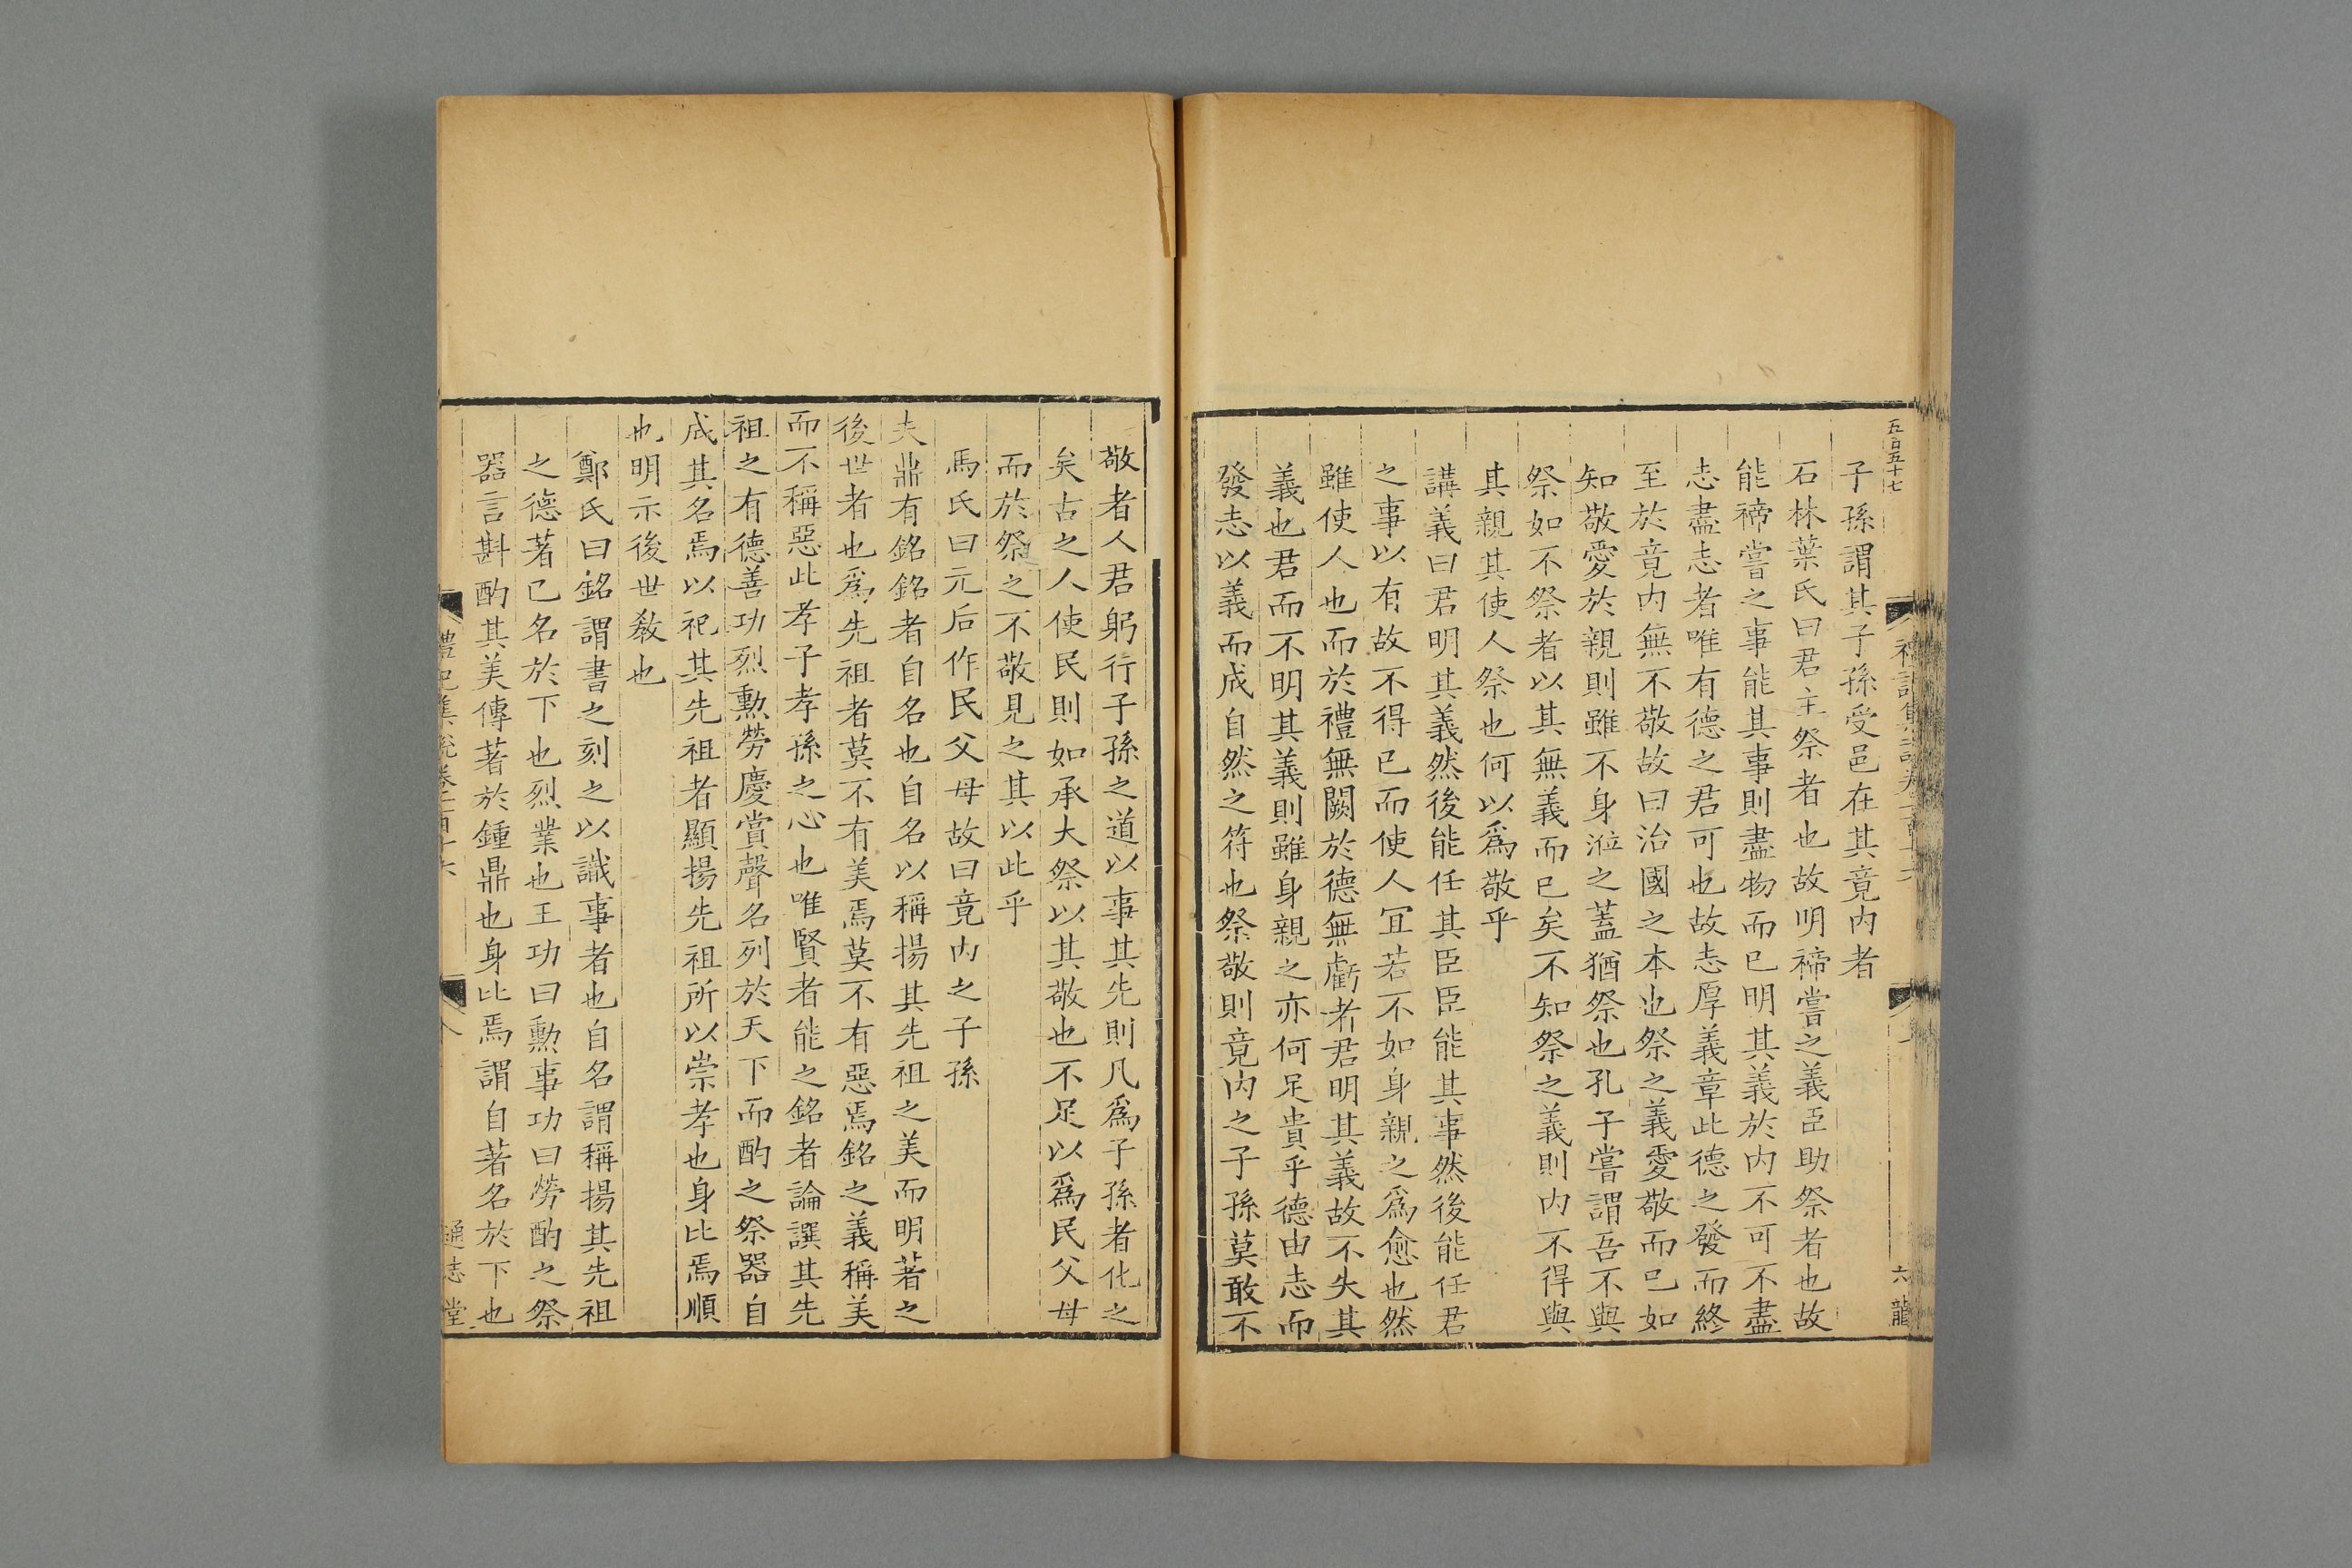 五百五十七
子孫謂其子孫受邑在其竟內者
石林葉氏曰君主祭者也故明禘嘗之義臣助祭者也故
能禘嘗之事能其事則盡物而已明其義於內不可不盡
志盡志者唯有德之君可也故志厚義章此德之發而終
至於竟內無不敬故曰治國之本也祭之義愛敬而已如
知敬愛於親則雖不身涖之蓋猶祭也孔子嘗謂吾不與
祭如不祭者以其無義而已矣不知祭之義則內不得與
其親其使人祭也何以爲敬乎
講義曰君明其義然後能任其臣臣能其事然後能任君
之事以有故不得已而使人冝若不如身親之爲愈也然
雖使人也而於禮無闕於德無虧者君明其義故不失其
義也君而不明其義則雖身親之亦何足貴乎德由志而
發志以義而成自然之符也祭敬則竟內之子孫莫敢不
六 龍
敬者人君躬行子孫之道以事其先則凡爲子孫者化之
矣古之人使民則如承大祭以其敬也不足以爲民父母
而於祭之不敬見之其以此乎
馬氏曰元后作民父母故曰竟內之子孫
夫鼎有銘銘者自名也自名以稱揚其先祖之美而明著之
後世者也爲先祖者莫不有美焉莫不有惡焉銘之義稱美
而不稱惡此孝子孝孫之心也唯賢者能之銘者論譔其先
祖之有德善功烈勲勞慶賞聲名列於天下而酌之祭器自
成其名焉以祀其先祖者顯揚先祖所以崇孝也身比焉順
也明示後世敎也
鄭氏曰銘謂書之刻之以識事者也自名謂稱揚其先祖
之德著已名於下也烈業也王功曰勲事功曰勞酌之祭
器言斟酌其美傳著於鍾鼎也身比焉謂自著名於下也
禮記集說卷一百十六
八
通志堂